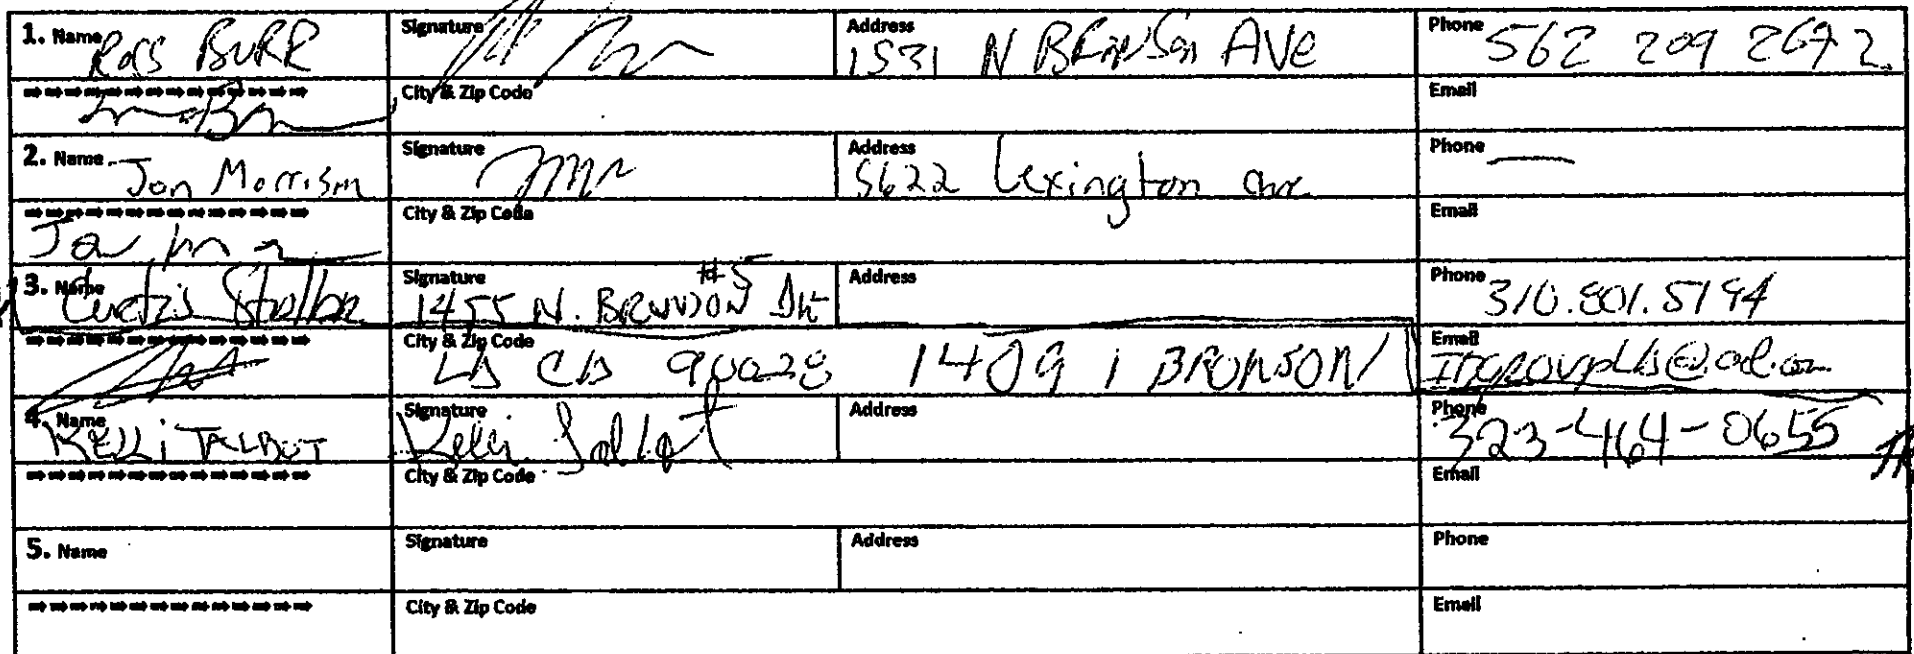 1. Name Ross BURR Signature Address 1531 N BRONSON AVE Phone 562 209 2672
⇒⇒⇒⇒⇒⇒⇒⇒⇒⇒⇒⇒⇒⇒ City & Zip Code Email
2. Name Jon Morrison Signature Address 5622 Lexington ave Phone —
⇒⇒⇒⇒⇒⇒⇒⇒⇒⇒⇒⇒⇒⇒ City & Zip Code Email
3. Name Curtis Signature 1455 N. #5 Address Phone 310.801.5194
⇒⇒⇒⇒⇒⇒⇒⇒⇒⇒⇒⇒⇒⇒ City & Zip Code LA CA 90028 1409 BRONSON Email
4. Name KELLI TALBOT Signature Kelli Talbot Address Phone 323-464-0655
⇒⇒⇒⇒⇒⇒⇒⇒⇒⇒⇒⇒⇒⇒ City & Zip Code Email
5. Name Signature Address Phone
⇒⇒⇒⇒⇒⇒⇒⇒⇒⇒⇒⇒⇒⇒ City & Zip Code Email